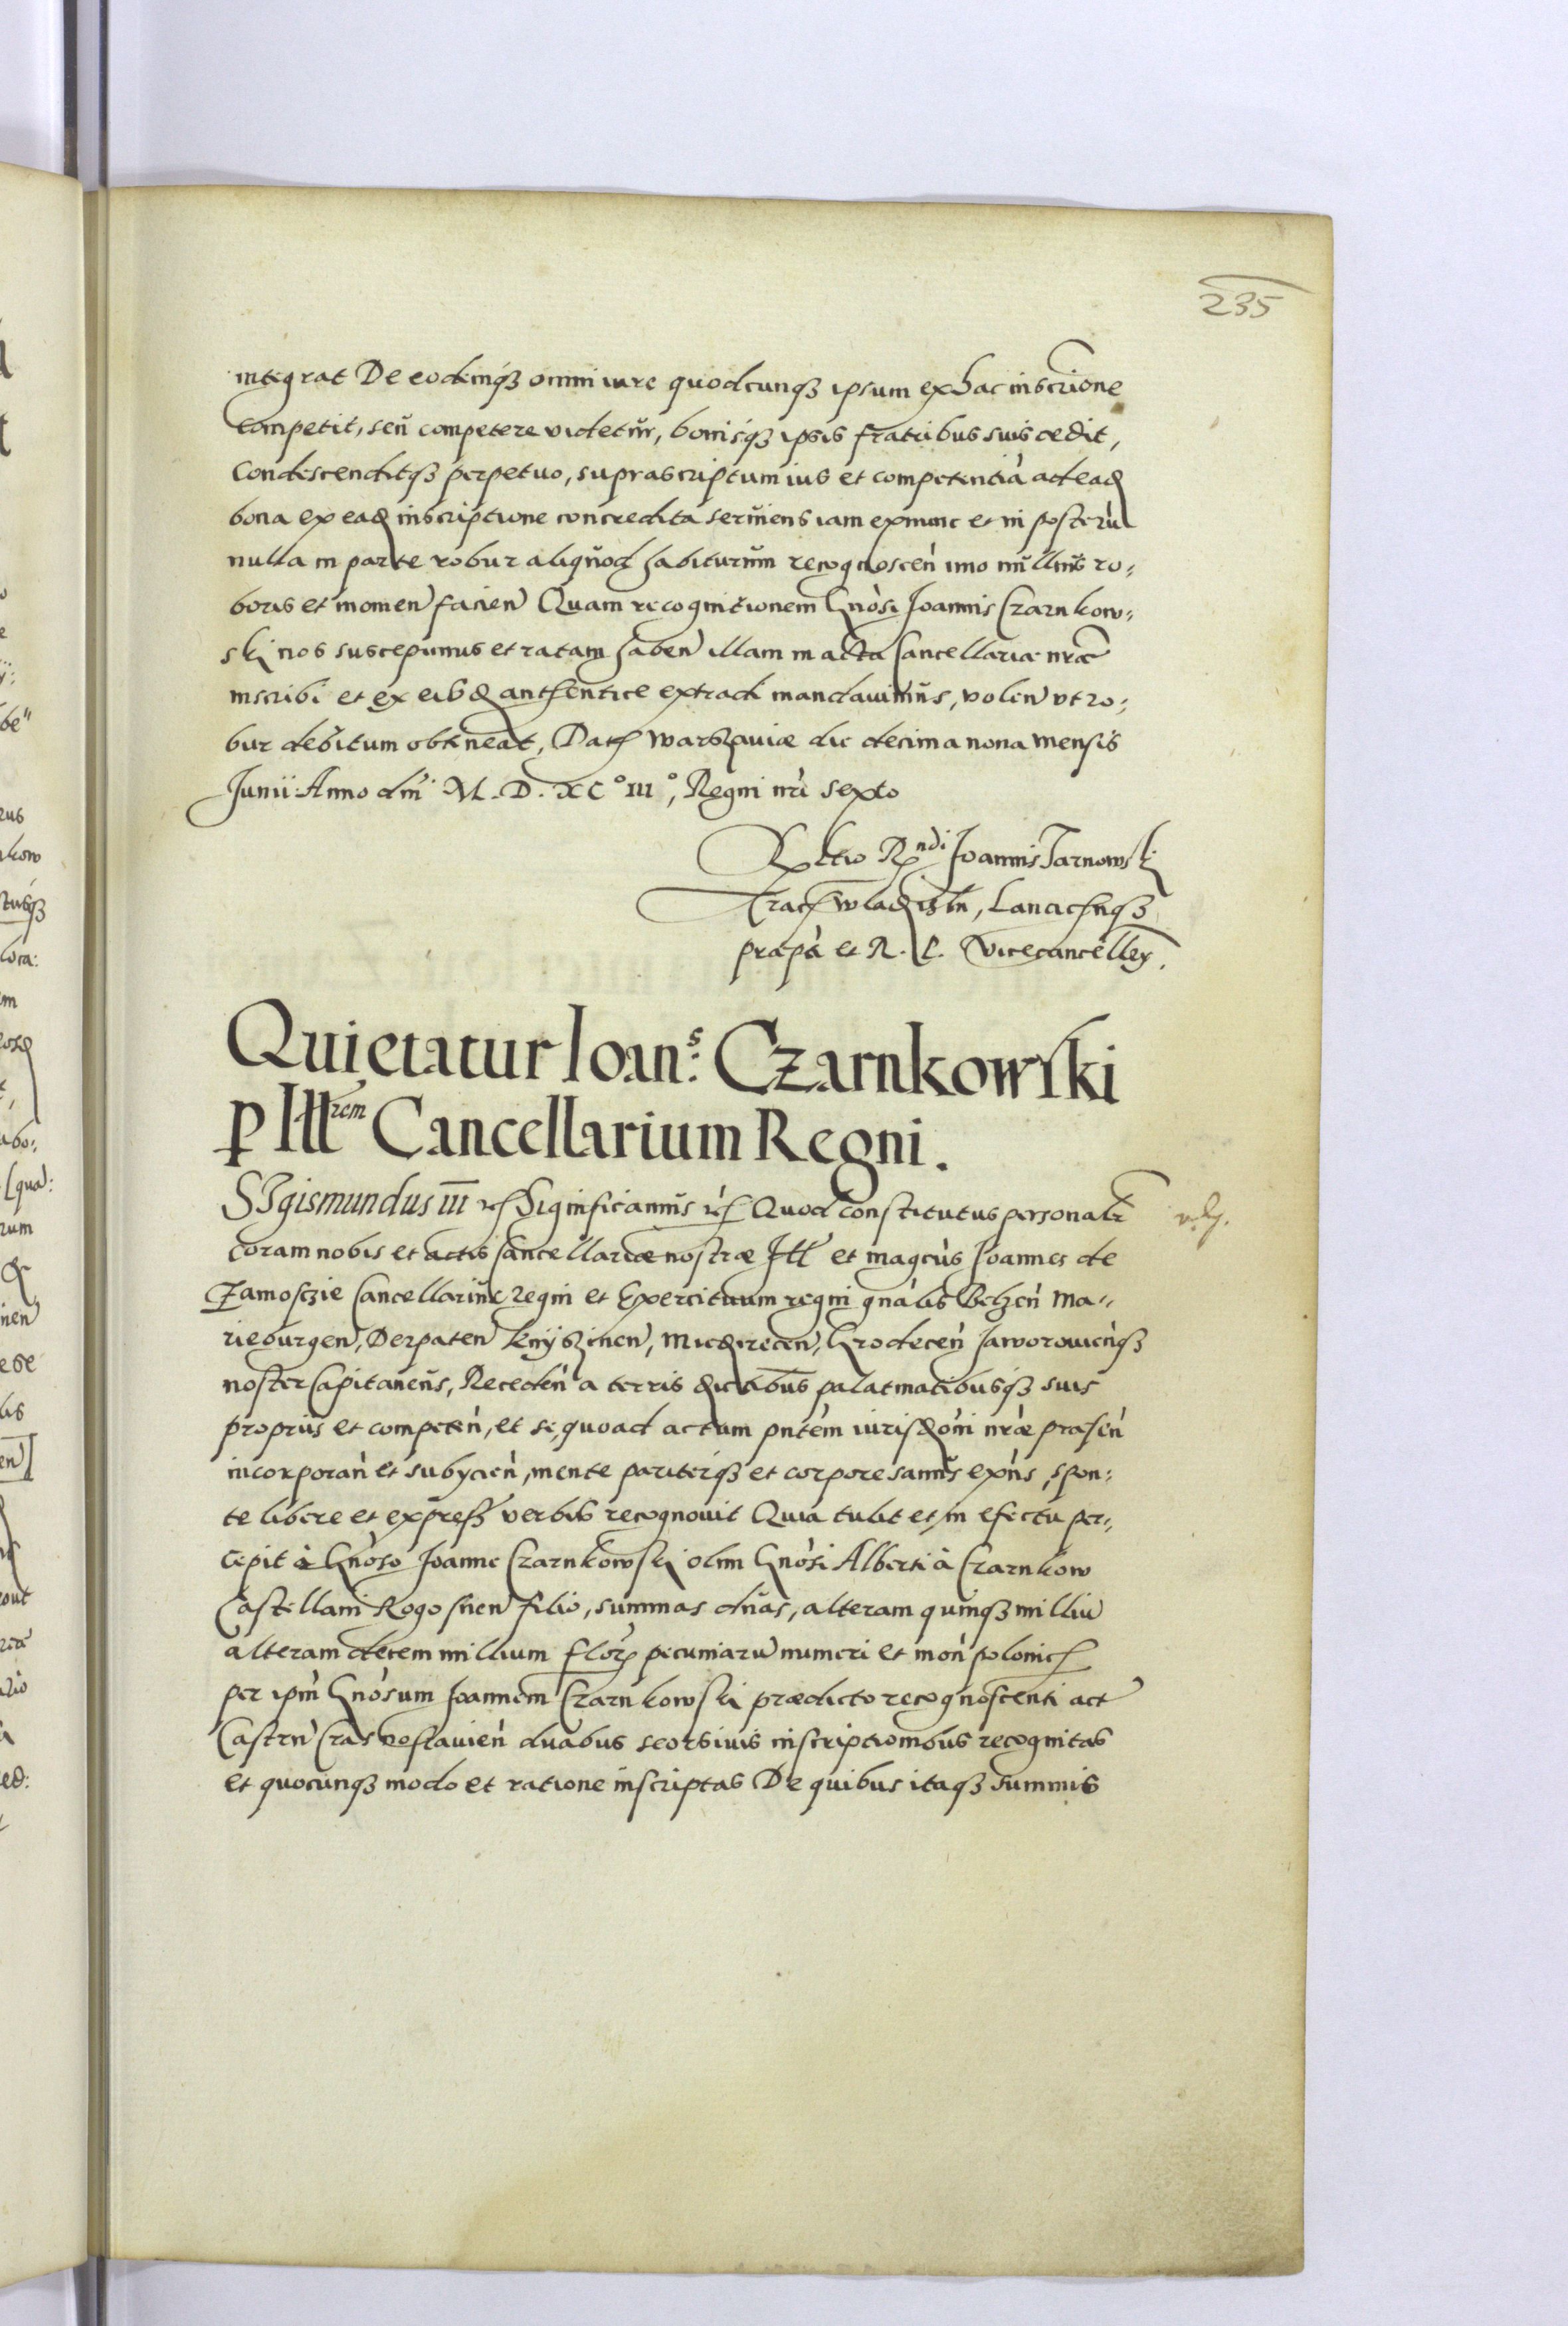 235
integrat De eodemq3 omni iure quodcunq3 ipsum ex hac inscrione
competit, seu competere videtur, bonisq3 ipsis fratribus suis cedit,
Condescenditq3 perpetuo, suprascriptum ius et competentia ad ead
bona ex ead inscriptione concredita serviens iam exnunc et in posterū
nulla in parte robur aliquod habiturum recognoscen̄ imo nullius ro:
boris et momen̄ facien̄ Quam recognitionem Gnosi Joannis Czarnkow:
ski nos suscepimus et ratam haben̄ illam in acta Cancellariæ nræ
inscribi et ex eibd authentice extradi mandavimus, volen̄ vt ro:
bur debitum obtineat, Dat Warszaviæ die decima nona mensis
Junii Anno dni M. D. XC° III°, Regni nri sexto
Joannis Tarnowski
Wladisln, Lancicnq3
præpa et R. P. Vicecanceller.
Quietatur Ioan:s Czarnkowski
p Ill:rem Cancellarium Regni.
SIgismundus III Significamus Quod constitutus personalr
coram nobis et actis Cancellariæ nostræ Ill et magcus Joannes de
Zamoschie Cancellarius regni et Exercituum regni gnalis Belzen̄ Ma:
rieburgen̄, Derpaten̄ Knyszinen̄, Miedzirecen̄, Grodecen̄ Jaworovienq3
noster Capitaneus, Receden̄ a terris districtibus palatinatibusq3 suis
propriis et competen̄, et se, quoad actum pntem iurisdoni nræ præsen̄
incorporan̄ et subycien̄, mente pariterq3 et corpore sanus exns, spon:
te libere et express verbis recognovit Quia tulit et in efectu per:
cepit à Gnoso Joanne Czarnkowski olim Gnosi Alberti à Czarnkow
Castellani Rogosnen̄ filio, summas duas, alteram quinq3 milliū
alteram decem millium flor pecuniarū numeri et mon̄ polonic
per ipm Gnosum Joannem Czarnkowski prædicto recognoscenti act
Castrn̄ Crasnostavien̄ duabus seorsivis inscriptionibus recognitas
et quocunq3 modo et ratione inscriptas De quibus itaq3 summis